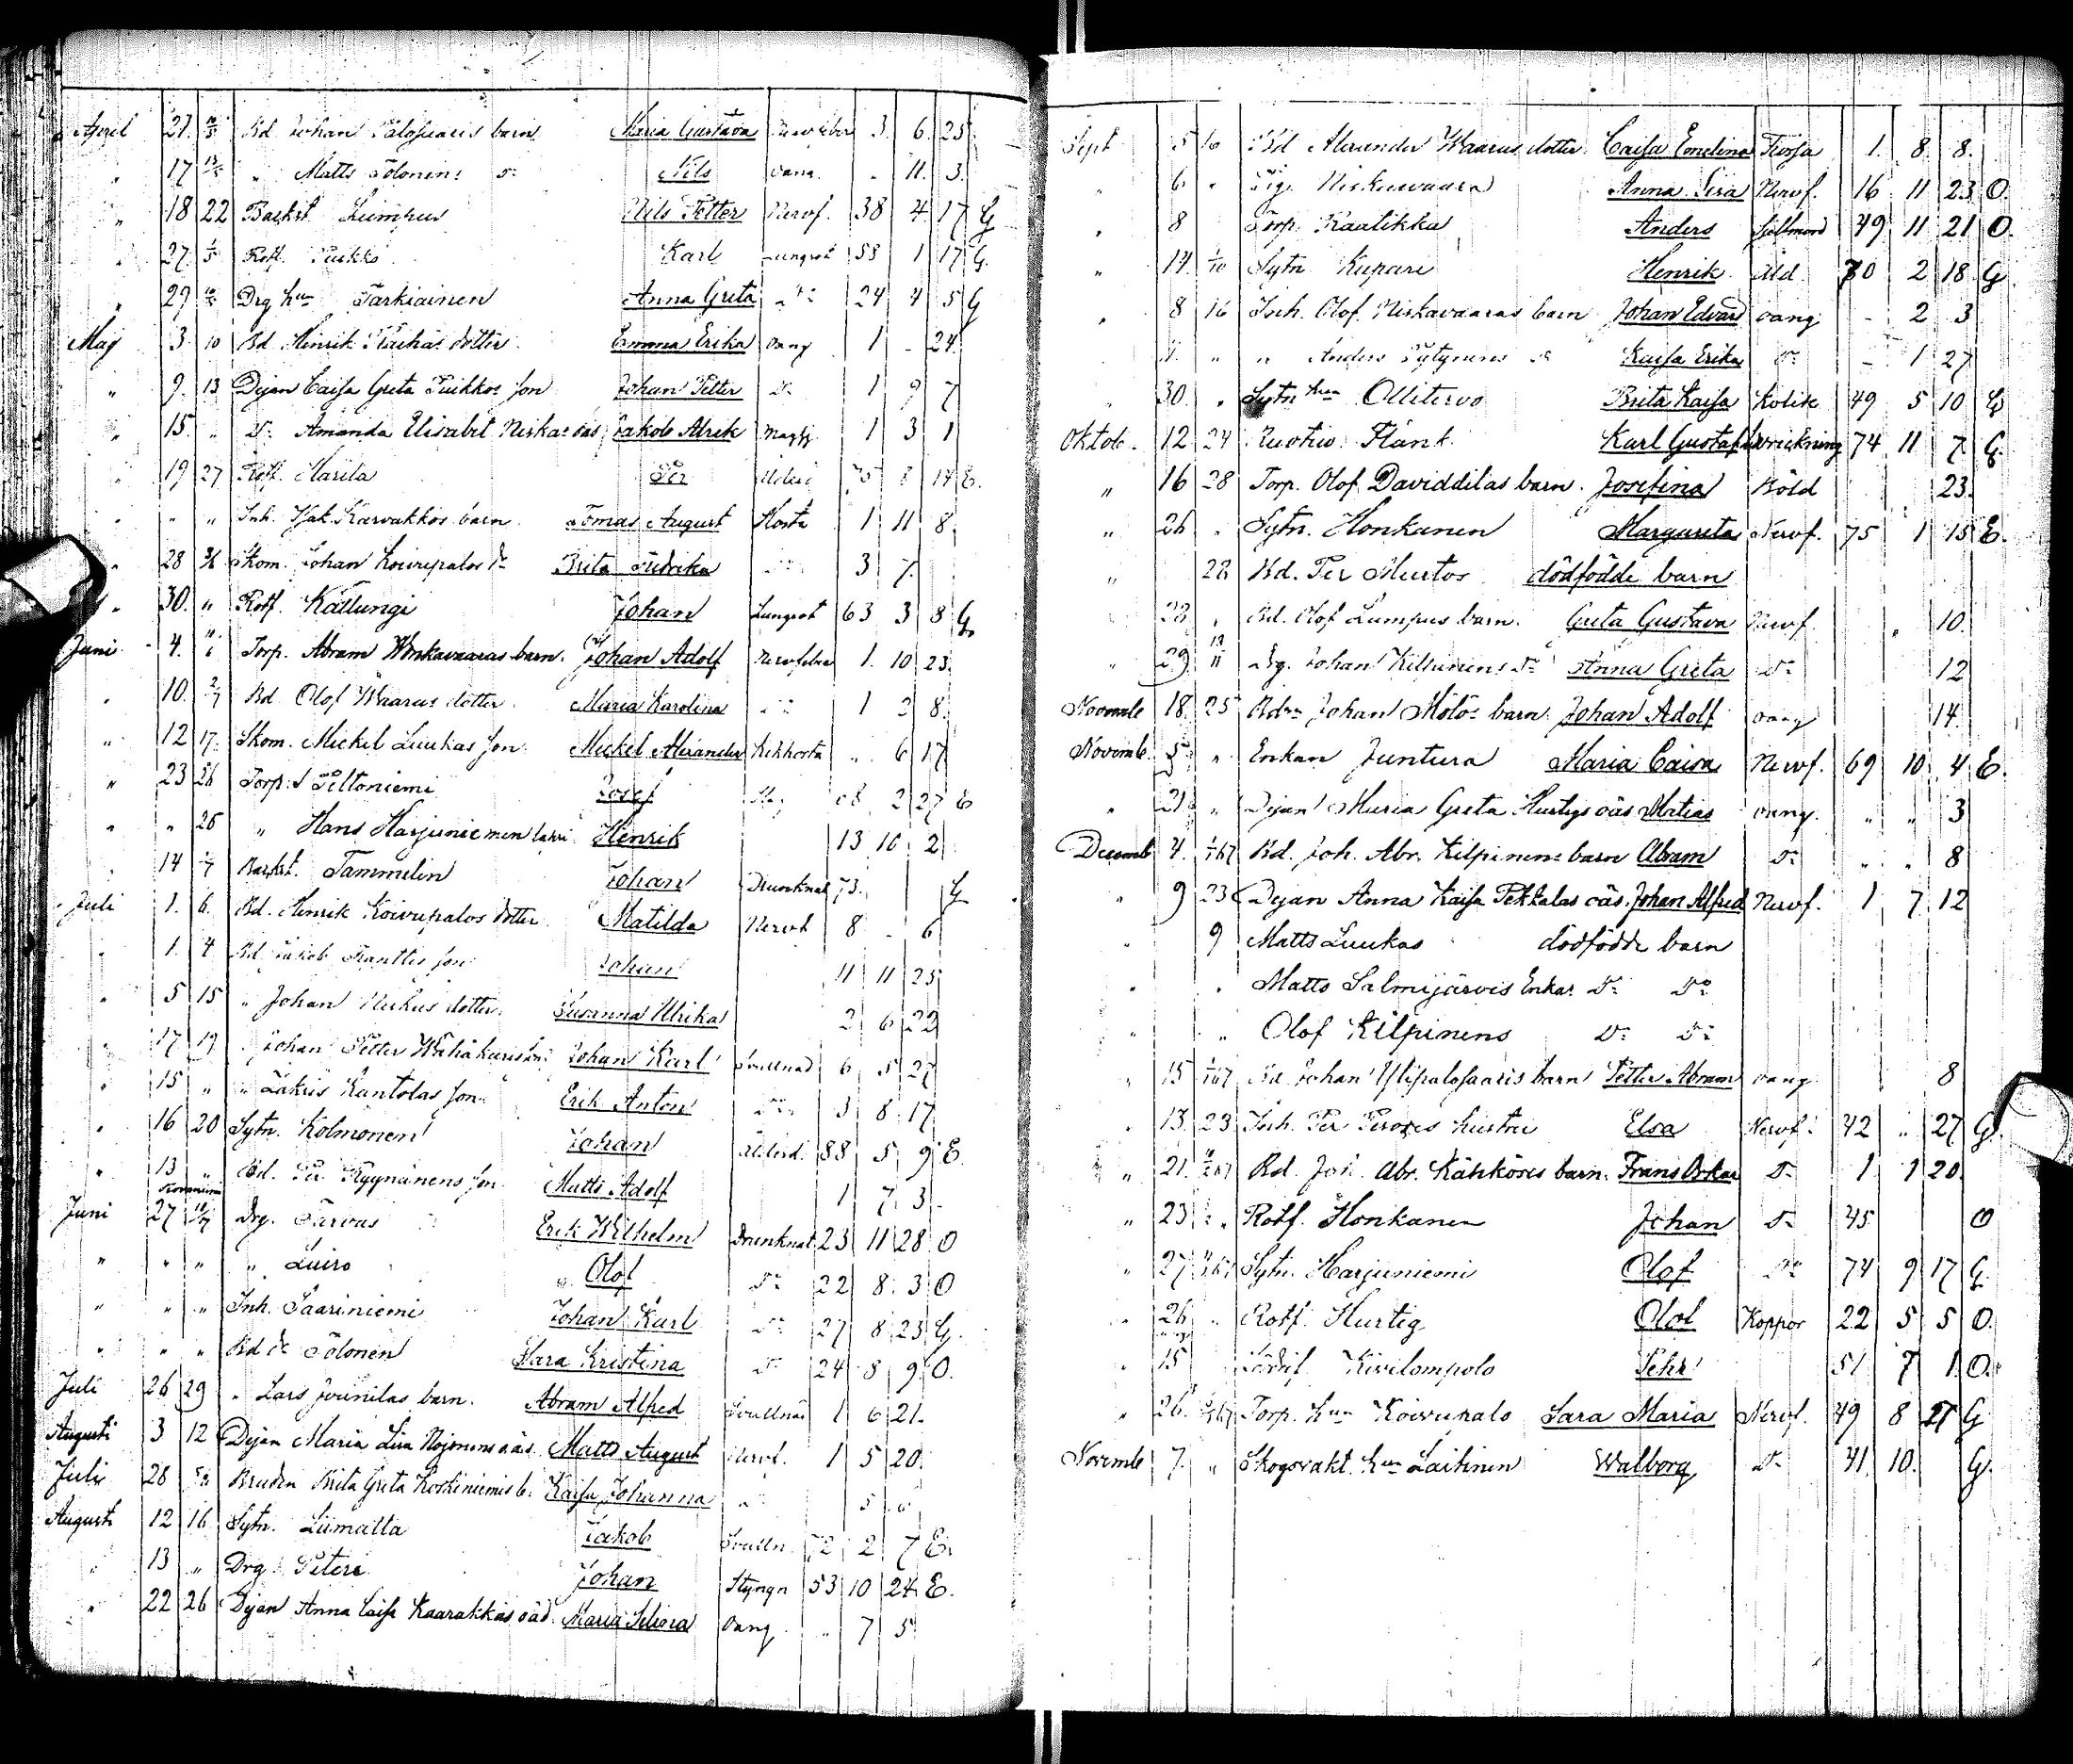 April 27. 10/5 Bd Johan Palosaaris barn Maria Gustava Nervfeber 3. 6. 25.
" 17 13/5 " Matts Tolonens d:o Nils oang. - 11. 3.
" 18 22 Backst. Lumpus Nils Petter Nervf. 38 4 17 G
" 27. 1/5 Rotf. Puikko Karl Lungsot 58 1 17 G.
" 29 Drg hu Tarkiainen Anna Greta d:o 24 4 5 G
Maj 3. 10 Bd. Henrik dotter Emma Erika oang 1 - 24.
" 9. 13 Dejan Caisa Greta Puikkos son Johan Petter d:o 1 9 7
" 15. " d:o Amanda Elisabet Niskas oäs Jakob Alrik 1 3 1
" 19 27 Rotf. Marila Per 75 8 14 E.
" " " Inh. Isak Karvakkos barn Tomas August Hosta 1 11 8.
" 28 3/6 Skom. Johan Koivupalos d:r Brita Fredrika d:o 3 7.
" 30. " Rotf. Kallungi Johan Lungsot 63 3 8 G
Juni 4. Torp. Abram Wonkavaaras barn. Johan Adolf Nervfeber 1. 10 23.
" 10. 2/7 Bd Olof Waaras dotter Maria Karolina d:o 1 2 8.
" 12 17. Skom. Mickel Luukas son Mickel Alexander Kikhosta " 6 17
" 23 26 Torp. S Peltoniemi Josef 2 27 E
" " 26 " Hans Harjuniemen Henrik 13 10 2
" 14 Backst. Tammelin Johan Drunknat 73. G
Juli 1. 6. Bd. Henrik Koivupalos dotter Matilda Nervf 8 - 6
" 1. 4 Bd. Jakob son Johan 11 11 25
" 5 15 " Johan dotter. Susanna Ulrika 2 6 22
" 17 19 " Johan Petter son Johan Karl Svullnad 6 5 27
" 15 " " Zakris Kantolas son Erik Anton d:o 3 8 17
" 16 20 Sytn. Kolmonen Johan Ålderd. 88 5 9 E.
" 13 " Bd. Per Kyynänens son Matts Adolf 1 7 3
Juni 27 Drg. Tarvas Erik Wilhelm Drunknat 23 11 28 O
" " " " Luiro Olof d:o 22 8 3 O
" " " Inh. Saariniemi Johan Karl d:o 27 8 23 G.
" " " Bd dr Tolonen Sara Kristina d:o 24 8 9 O.
Juli 26 29 " Lars Jounilas barn. Abram Alfred Svullnad 1 6 21.
Augusti 3 12 Dejan Maria Lisa Nojonens oäs. Matts August Nervf. 1 5 20.
Juli 28 Bruden Brita Greta Koskiniemis b. Kaisa Johanna 5
Augusti 12 16 Sytn. Liimatta Jakob Svulln. 72 2 7 E.
" 13 " Drg. Peteri Johan Styngn 53 10 24 E.
" 22 26 Dejan Anna Caisa Kaarakkas oäd. Maria Selina oang " 7 5
Sept 5 16 Bd Alexander Waaras dotter Caisa Emelina 1. 8. 8.
" 6. " Pig. Niskavaara Anna Lisa Nervf. 16 11 23 O.
" 8 Torp. Raatikka Anders Sjelfmord 49 11 21 O.
" 14 1/10 Sytn. Kupari Henrik Åld. 70 2 18 G
" 8 16 Inh. Olof Niskavaaras barn Johan Edvard oang - 2 3
" " " Anders Pytynens d:r Kaisa Erika d:o - 1 27
" 30. " Sytn hu Ollitervo Brita Kaisa Kolik 49 5 10 G
Oktob. 12 24 Ruotiv. Plank Karl Gustaf 74 11 7. G
" 16 28 Torp. Olof Daviddilas barn. Josefina Köld 23.
" 26 " Sytn. Honkanen Margareta Nervf. 75 1 15 E.
" 28 Bd. Per Murtos dödfödde barn
" 23. " Bd. Olof Lumpus barn. Greta Gustava Nervf. " 10.
" 29 12/11 Drg. Johan Kilpinens d:r Anna Greta d:o 12
Novemb 18 25 Bdn Johan Mölös barn. Johan Adolf oang 14.
Novemb. 5 " Enkan Juntura Maria Caisa Nervf. 69 10 4 E.
" 21 " Dejan Maria Greta Hurtigs oäs Matias oang. " " 3
Decemb 4. 1/1 67 Bd. Joh. Abr. Kilpinens barn Abram d:o " " 8
" 9 23 Dejan Anna Kaisa Pekkalas oäs. Johan Alfred Nervf. 1 7 12
" 9 Matts Luukas dödfödde barn
" " Matts Salmijärvis Enkas d:o d:o
" " Olof Kilpinens d:o d:o
" 15 1/1 67 Bd Johan Ylipalosaaris barn Petter Abram oang 8
" 13. 23 Inh. Per hustru Elsa Nervf. 42 " 27 G.
" 21. Bd. Joh. Abr. Kähköses barn. Frans Oskar d:o 1 1 20.
" 23 " Rotf. Honkanen Johan d:o 45 O
" 27 Sytn. Harjuniemi Olof d:o 74 9 17 G.
" 26 " Rotf. Hurtig Olof Koppor 22 5 5 O.
" 15 Kivilompolo Pehr 51 7 1 O.
" 26. Torp. hu Koivupalo Sara Maria Nervf. 49 8 21 G
Novemb 7. " Skogsvakt. hu Laitinen Walborg d:o 41 10. G.